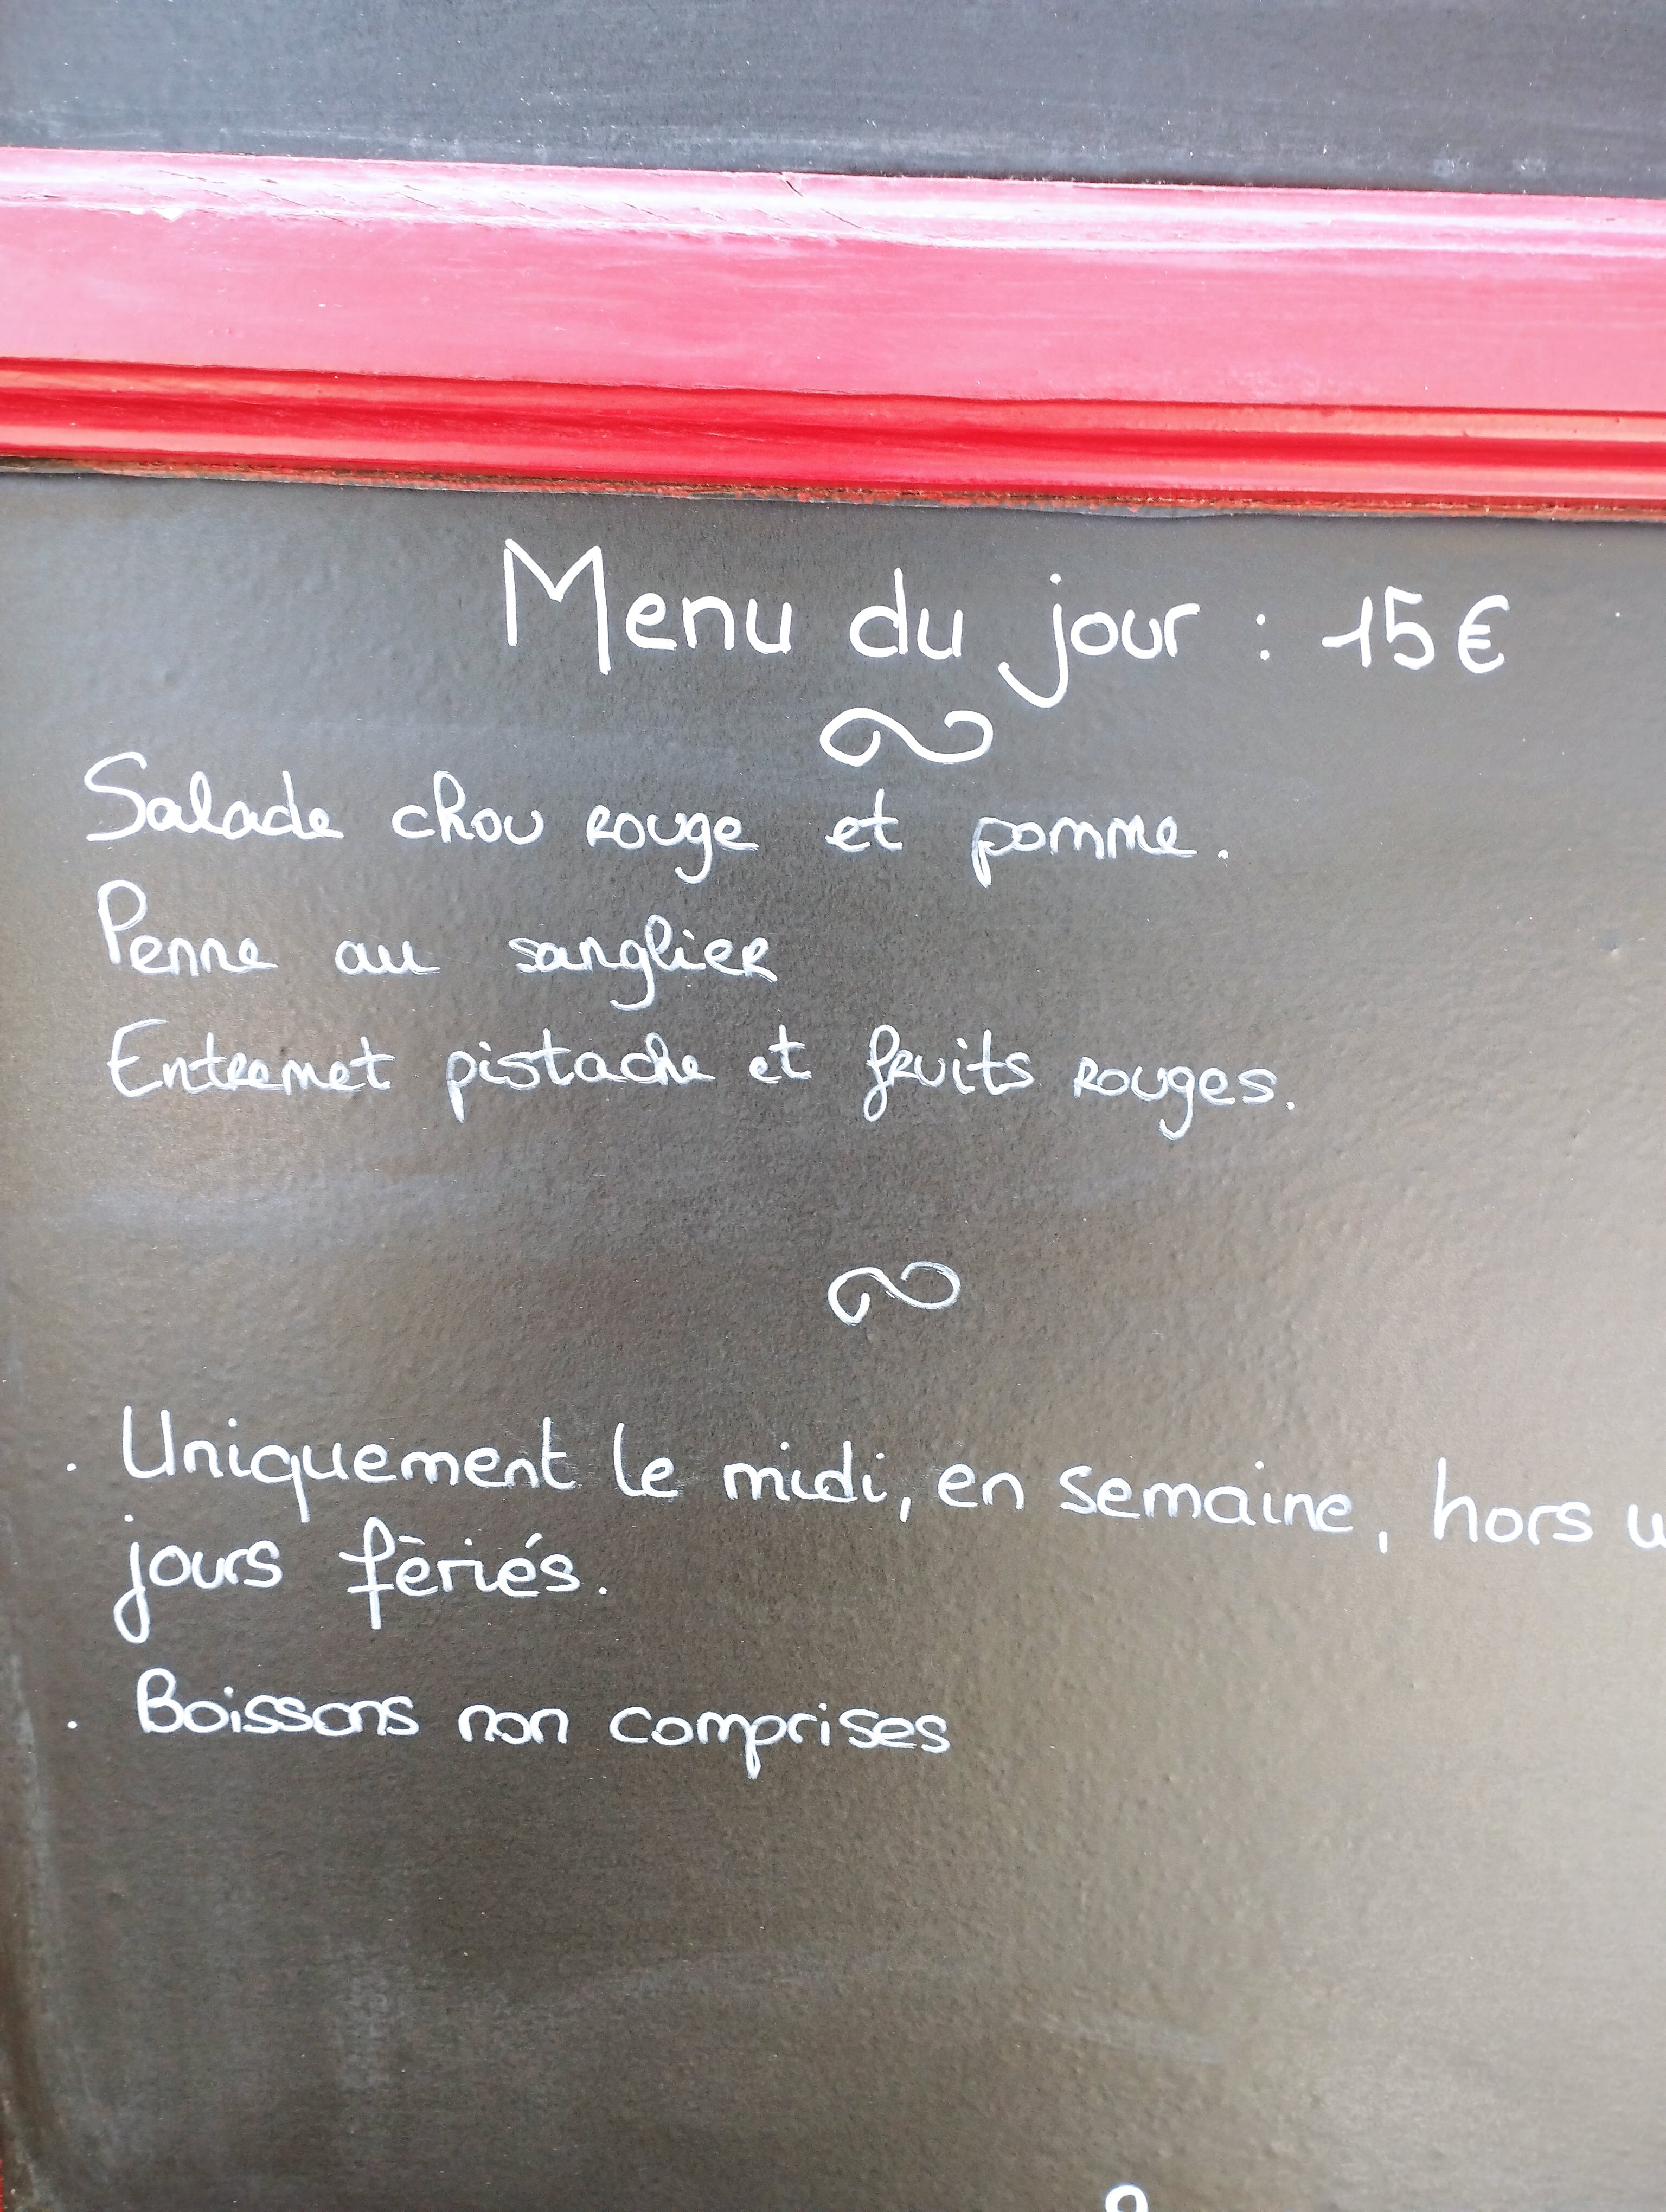 Menu du jour : 15€
Salade chou rouge et pomme.
Penne au sanglier
Entremet pistache et fruits rouges.
. Uniquement le midi, en semaine, hors
jours fèriés.
. Boissons non comprises